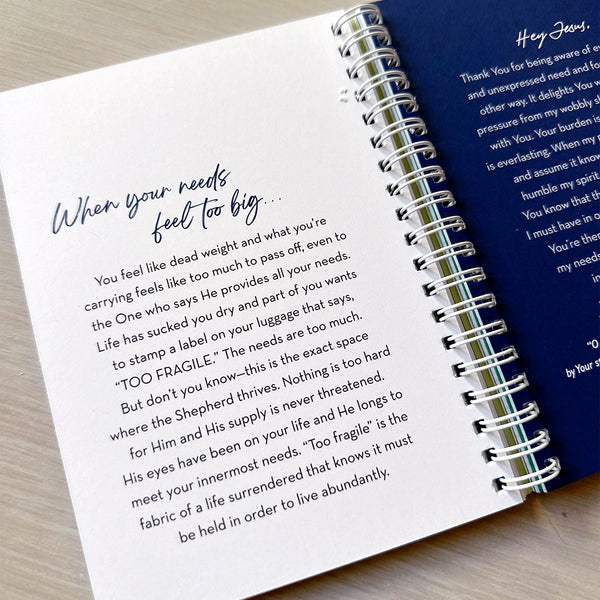 When your needs
feel too big...
You feel like dead weight and what you're
carrying feels like too much to pass off, even to
the One who says He provides all your needs.
Life has sucked you dry and part of you wants
to stamp a label on your luggage that says,
"TOO FRAGILE." The needs are too much.
But don't you know—this is the exact space
where the Shepherd thrives. Nothing is too hard
for Him and His supply is never threatened.
His eyes have been on your life and He longs to
meet your innermost needs. "Too fragile" is the
fabric of a life surrendered that knows it must
be held in order to live abundantly.
Hey Jesus,
Thank You for being aware of
and unexpressed need and
other way. It delights You
pressure from my wobbly
with You. Your burden is
is everlasting. When my
and assume it
humble my spirit
You know that
I must have in
You're
my needs
"O
by Your